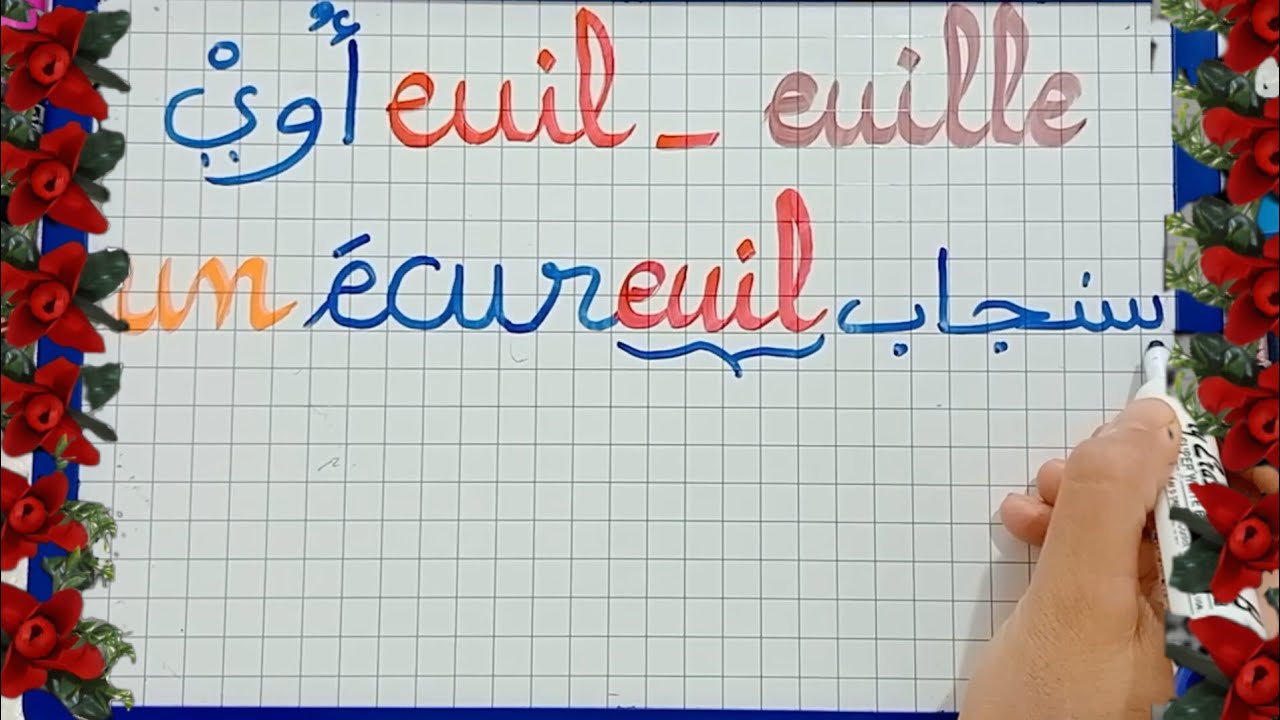 أُويْ euil - euille
un écureuil سنجاب